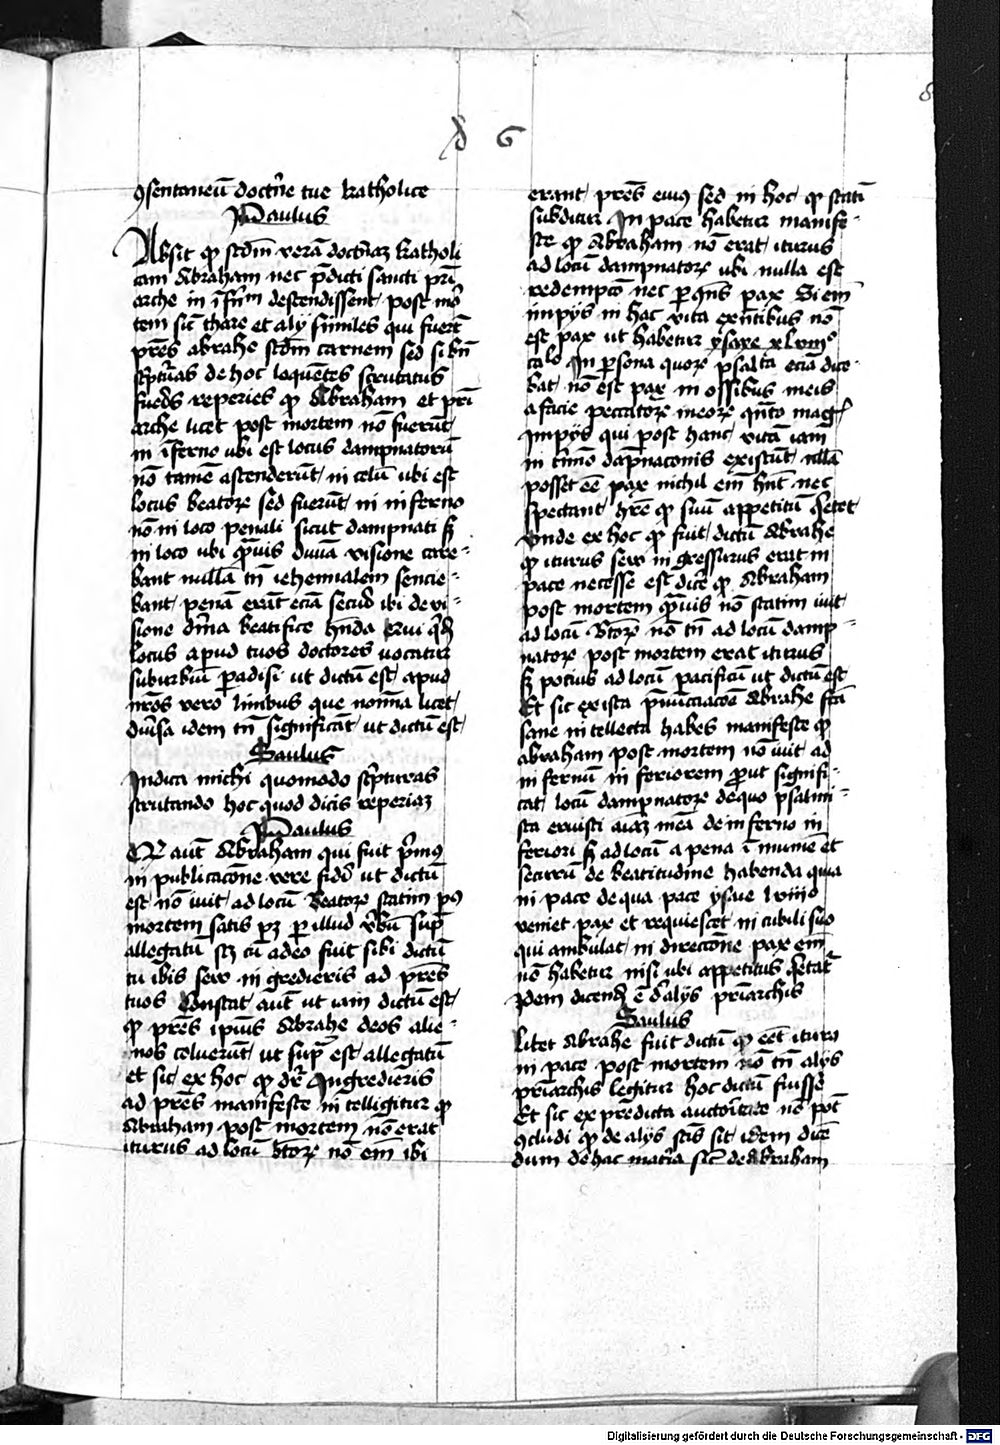 8
d 6
ꝯsentaneū doctͥne tue katholice
Paulus
Absit ꝙ scd̄m verā doctͥnaꝫ katholi
cam Abraham nec p̄dicti sancti pr̄i
arche in īfn̄m descendissent post mor̄
tem sic̄ thare et alij similes qui fuer̄t
pr̄es abrahe scd̄m carnem sed si bn̄
sc̄pturas de hoc loquentes scrutatus
fueris reperies ꝙ Abraham et pr̄i
arche licet post mortem nō fuerūt
in īferno ubi est locus dampnatorū
nō tamē ascenderūt in celū ubi est
locus beatoꝝ sed fuerūt in inferno
nō in loco penali sicut dampnati sꝫ
in loco ubi qͣmuis diuīa visione care-
bant nullā tn̄ iehennalem sencie-
bant penā erāt eciā securi ibi de vi-
sione diuīa beatifice hn̄da
locus apud tuos doctores vocatur
suburbiū paradisi ut dictū est apud
nr̄os vero limbus que nomīa licet
diūsa idem tn̄ significāt ut dictū est
Saulus
Induca michi quomodo sc̄pturas
scrutando hoc quod dicis reperiaꝫ
Paulus
aut̄ Abraham qui fuit pͥmus
in publicacōne vere fidei ut dictū
est nō iuit ad locū beatoꝝ statim pꝰ
mortem satis pꝫ per illud vbū supͣ
allegatū scꝫ cū adeo fuit sibi dictū
tu ibis seu ingredieris ad pr̄es
tuos Constat aut̄ ut iam dictū est
ꝙ pr̄es ipius Abrahe deos alie-
nos coluerūt ut supͣ est allegatū
et sic ex hoc ꝙ dr̄ Ingredieris
ad pr̄es manifeste intelligitur ꝙ
Abraham post mortem nō erat
iturus ad locū btōꝝ nō em̄ ibi
erant pr̄es eiuꝰ sed in hoc ꝙ statī
subditur In pace habetur manife-
ste ꝙ Abraham nō erat iturus
ad locū dampnatoꝝ ubi nulla est
redempcō nec per ꝯn̄s pax Si em̄
impijs in hac vita exn̄tibus nō
est pax ut habetur ysaye xlviii°
calo In persona quoꝝ psalta eciā dice-
bat nō est pax in ossibus meis
a facie peccatoꝝ meoꝝ qn̄to magꝭ
Impijs qui post hanc vitā iam
in tͥmīo dāpnaconis existūt nulla
posset eē pax nichil em̄ hn̄t nec
spectant hr̄e ꝙ suū appetitū qͥetet
Unde ex hoc ꝙ fuit dictū Abrahe
ꝙ iturus seu ingressurus erat in
pace necesse est dicē ꝙ Abraham
post mortem qͣmuis nō statim iuit
ad locū btōꝝ nō tn̄ ad locū damp-
natoꝝ post mortem erat iturus
sꝫ potius ad locū pacificū ut dictū est
Et sic ex ista pn̄unciacōe Abrahe fcā
sane intellecta habes manifeste ꝙ
abraham post mortem nō iuit ad
infernū inferiorem prout signifi-
cat locū dampnatoꝝ de quo psalmi-
sta eruisti aīaꝫ meā de inferno in
feriori sꝫ ad locū a pena īmunē et
securū de beatitudine habenda quia
in pace de qua pace ysaie lviiio
veniet pax et requiescet in cubili suo
qui ambulat in directōne pax em̄
nō habetur nisi ubi appetitus qͥetatͬ
Idem dicendū ē de alijs pr̄iarchis
Saulus
Licet Abrahe fuit dictū ꝙ eēt iturus
in pace post mortem nō tn̄ alijs
pr̄iarchis legitur hoc dictū fuisse
Et sic ex predicta auctoritate nō pōt
ꝯcludi ꝙ de alijs scīs sit idem dicē
dum de hac mat̄ia sic̄ de Abraham
Digitalisierung gefördert durch die Deutsche Forschungsgemeinschaft - DFG